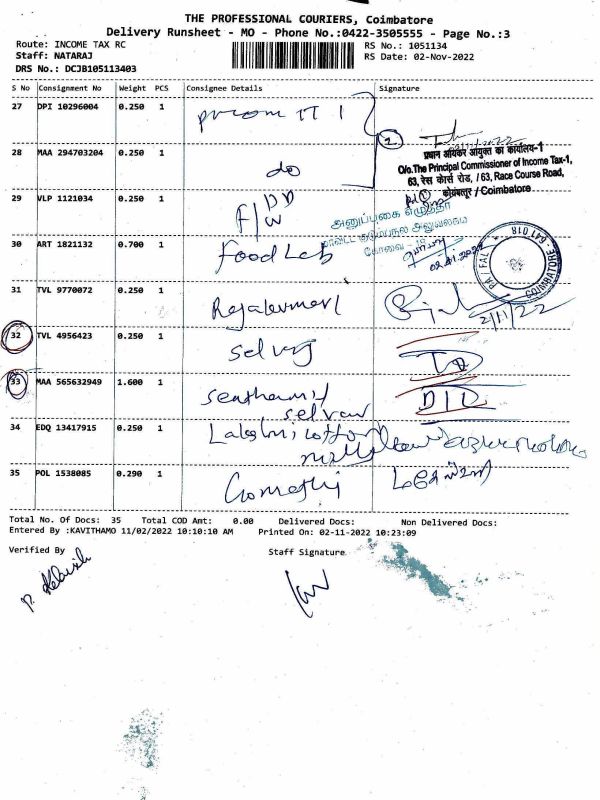 THE PROFESSIONAL COURIERS, Coimbatore
Delivery Runsheet - MO - Phone No.:0422-3505555 - Page No.:3
Route: INCOME TAX RC
RS No.: 1051134
Staff: NATARAJ
RS Date: 02-Nov-2022
DRS No.: DCJB105113403
S No Consignment No Weight PCS Consignee Details Signature
27 DPI 10296004 0.250 1
1
प्रधान आयकर आयुक्त का कार्यालय-1
O/o.The Principal Commissioner of Income Tax-1,
63, रेस कोर्स रोड, / 63, Race Course Road,
कोयंबत्तूर / Coimbatore
28 MAA 294703204 0.250 1 do
29 VLP 1121034 0.250 1 F/W
கோவை - 18
30 ART 1821132 0.700 1 Food Lab
COIMBATORE - 641 018
31 TVL 9770072 0.250 1
2/11/22
32 TVL 4956423 0.250 1 Selvaj
33 MAA 565632949 1.600 1 Senthamil
selvan
34 EDQ 13417915 0.250 1 Lakshmi cotton
35 POL 1538085 0.290 1 Gomathi
Total No. Of Docs: 35 Total COD Amt: 0.00 Delivered Docs: Non Delivered Docs:
Entered By :KAVITHAMO 11/02/2022 10:10:10 AM Printed On: 02-11-2022 10:23:09
Verified By Staff Signature